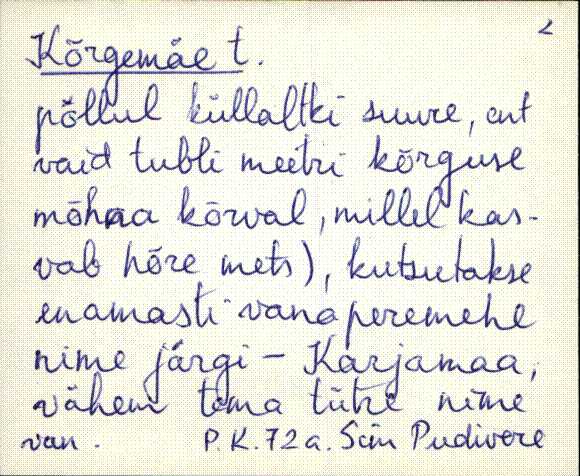 2
Kõrgemäe t.
põllul küllaltki suure, ent
vaid tubli meetri kõrguse
mõhna kõrval, millel kas-
vab hõre mets), kutsutakse
enamasti vanaperemehe
nime järgi - Karjamaa,
vähem tema tütre nime
van. P.K. 72 a. Sim Pudivere